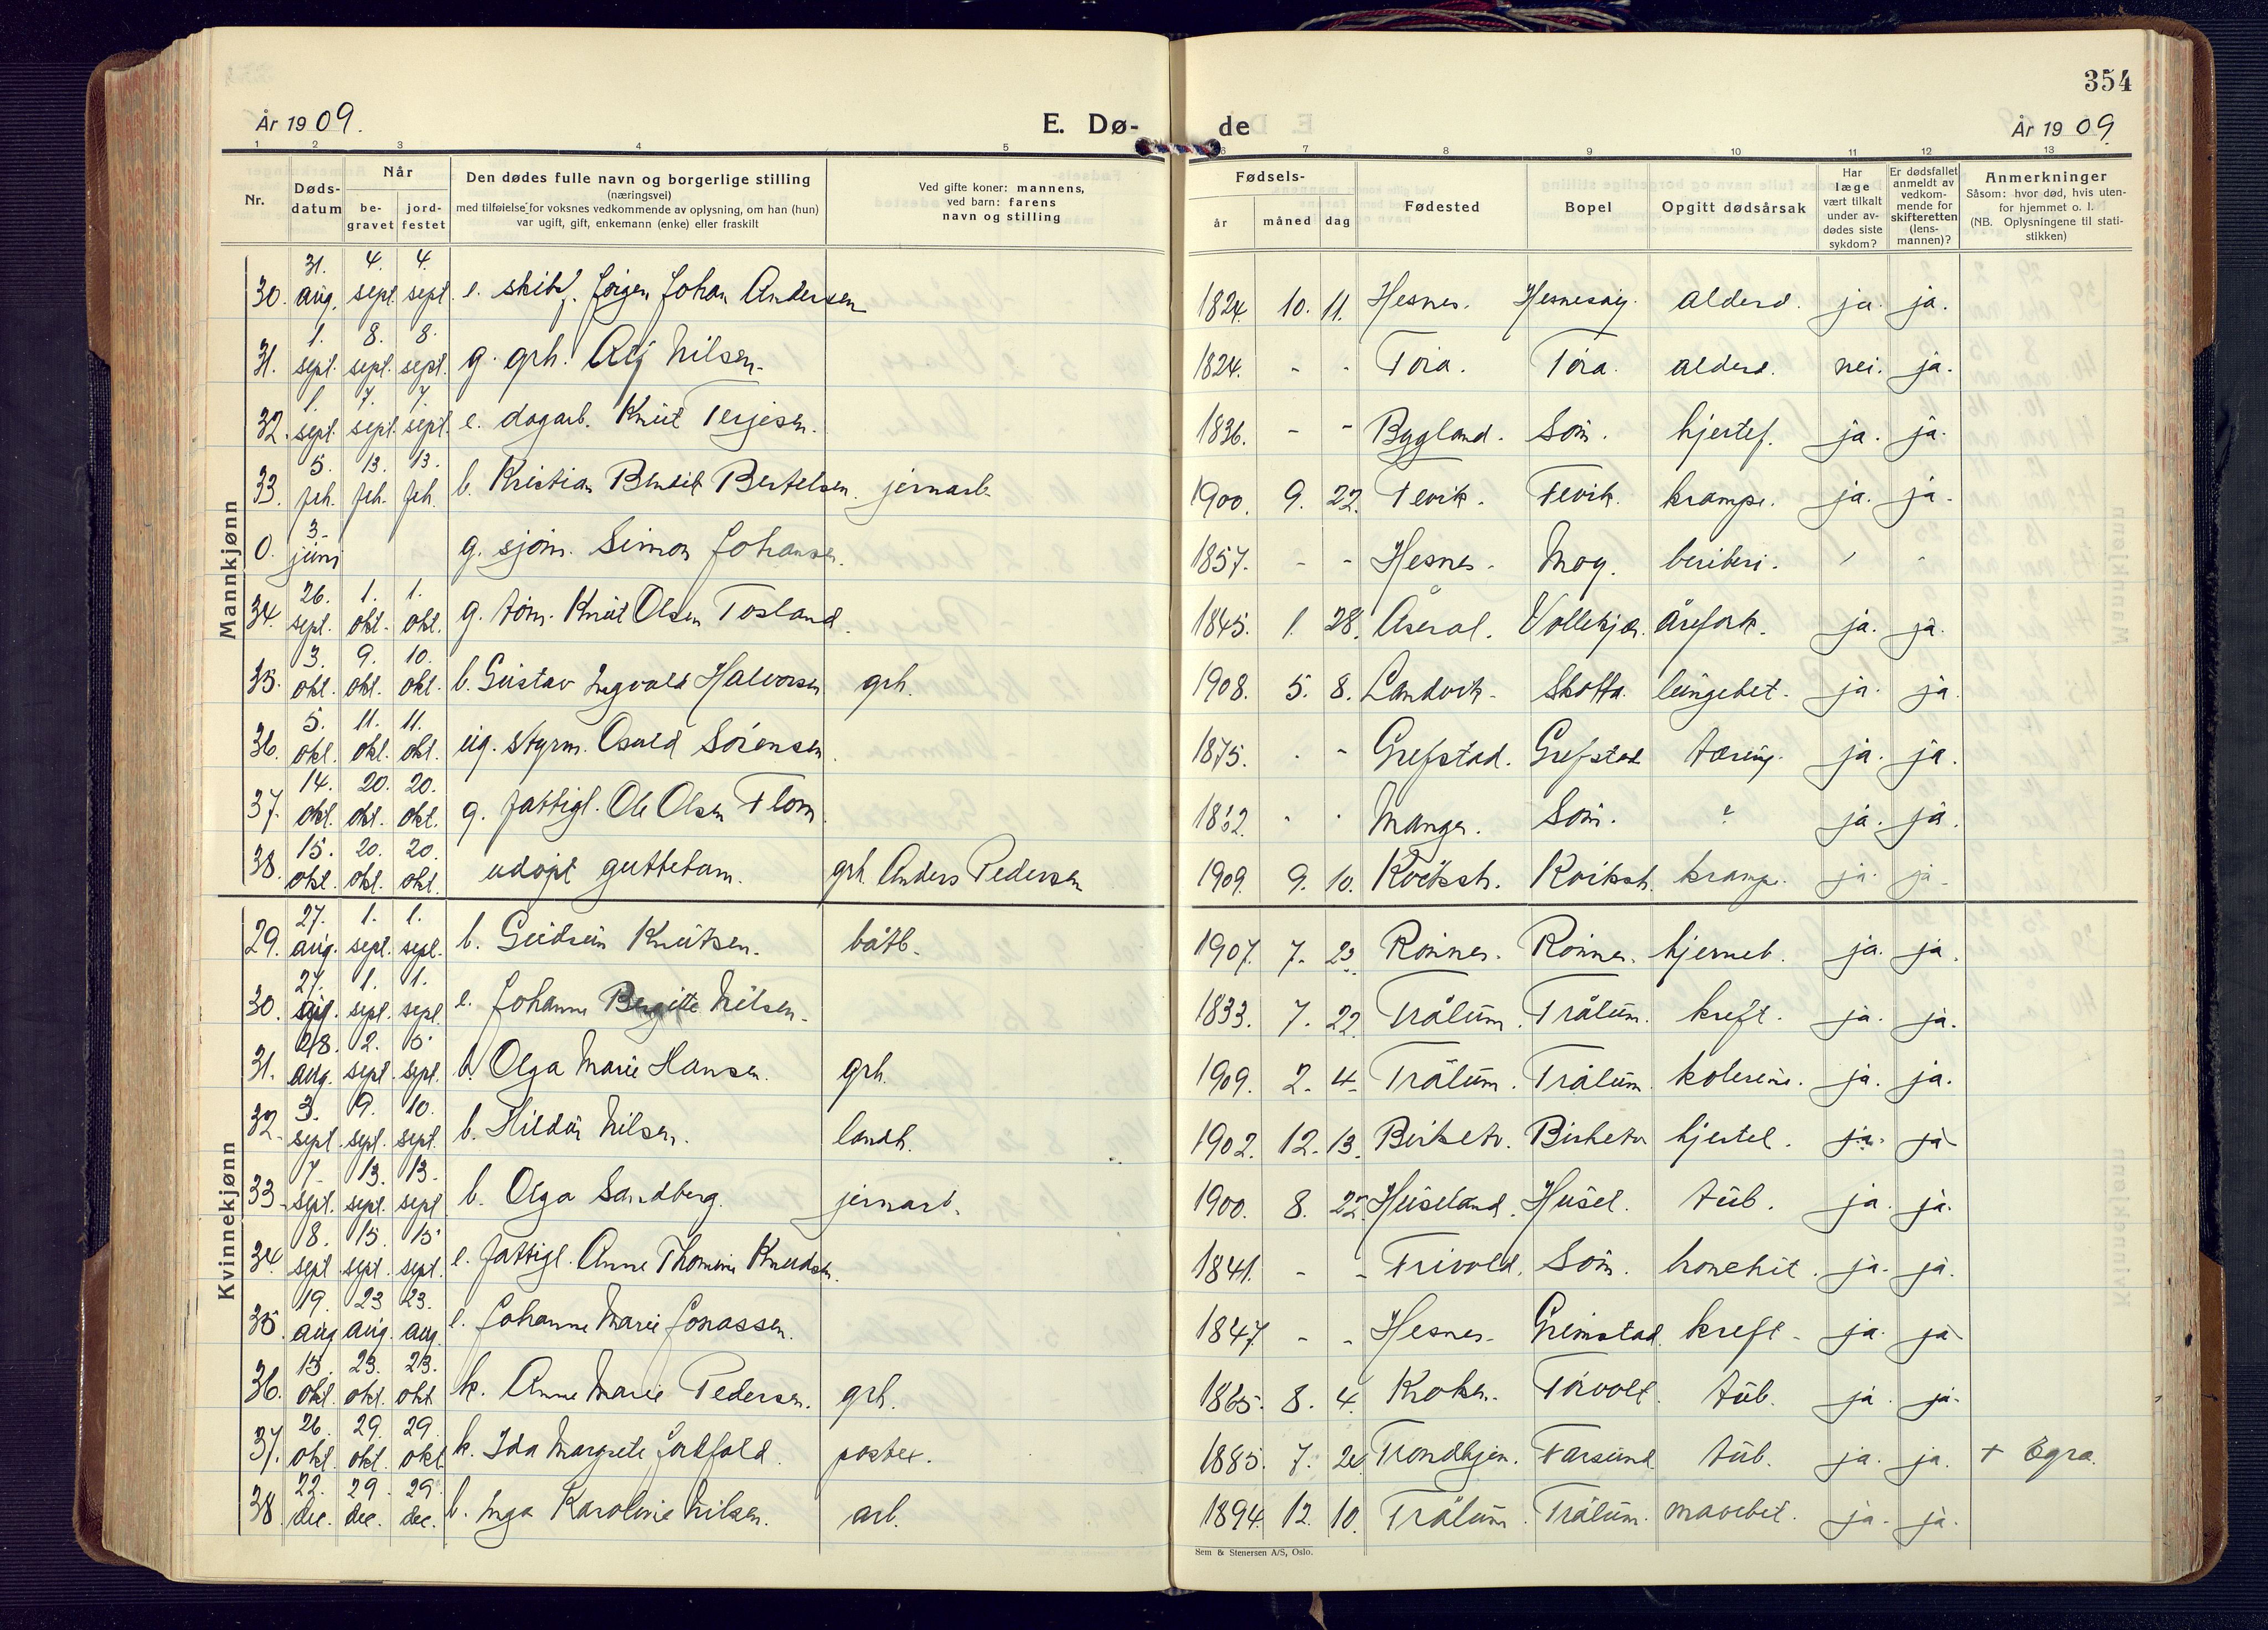 354
År 1909.
E. Dø-
de
År 1909.
1 2 3 4 5
6 7 8 9 10 11 12 13
Nr.
Døds-
datum
Når
be-
gravet
jord-
festet
Den dødes fulle navn og borgerlige stilling
(næringsvei)
med tilføielse for voksnes vedkommende av oplysning, om han (hun)
var ugift, gift, enkemann (enke) eller fraskilt
Ved gifte koner: mannens,
ved barn: farens
navn og stilling
Fødsels-
år måned dag
Fødested
Bopel
Opgitt dødsårsak
Har
læge
vært tilkalt
under av-
dødes siste
sykdom?
Er dødsfallet
anmeldt av
vedkom-
mende for
skifteretten
(lens-
mannen)?
Anmerkninger
Såsom: hvor død, hvis uten-
for hjemmet o. l.
(NB. Oplysningene til stati-
stikken)
Mannkjønn
30. 31. aug. 4. sept. 4. sept. e. skibsf. Jørgen Johan Andersen 1824. 10. 11. Hesnes. Hesnesøy. alderd. ja. ja.
31. 1. sept. 8. sept. 8. sept. g. grh. Nilsen. 1824. - - Tøra. Tøra. alderd. nei. ja.
32. 1. sept. 7. sept. 7. sept. e. dagarb. Knut Terjesen. 1836. - - Bygland. Søm. hjertef. ja. ja.
33. 5. feb. 13. feb. 13. feb. b. Kristian Bendik Bertelsen. jernarb. 1900. 9. 22. Fevik. Fevik. krampe. ja. ja.
0. 3. juni g. sjøm. Simon Johansen. 1857. - - Hesnes. Moy. beriberi. - -
34. 26. sept. 1. okt. 1. okt. g. tøm. Knut Olsen Tosland. 1845. 1. 28. Åseral. Vollekjær. årefork. ja. ja.
35. 3. okt. 9. okt. 10. okt. b. Gustav Ingvald Halvorsen grh. 1908. 5. 8. Landvik. Skotta. lungebet. ja. ja.
36. 5. okt. 11. okt. 11. okt. ug. styrm. Osvald Sørensen. 1875. - - Grefstad. Grefstad tæring. ja. ja.
37. 14. okt. 20. okt. 20. okt. g. fattigl. Ole Olsen Flom. - - Manger. Søm. ? ja. ja.
38. 15. okt. 20. okt. 20. okt. udøpt guttebarn. grh. Anders Pedersen 1909. 9. 10. Kviksh. Kviksh. krampe. ja. ja.
Kvinnekjønn
29. 27. aug. 1. sept. 1. sept. b. Gudrun Knutsen. båtb. 1907. 7. 23. Rønnes. Rønnes. hjerneb. ja. ja.
30. 27. aug. 1. sept. 1. sept. e. Johanne Bergitte Nilsen. 1833. 7. 22. Trålum. Trålum. kreft. ja. ja.
31. 28. aug. 2. sept. 5. sept. b. Olga Marie Hansen. grh. 1909. 2. 4. Trålum. Trålum. kolerine. ja. ja.
32. 3. sept. 9. sept. 10. sept. b. Hildur Nilsen. landh. 1902. 12. 13. Birketv. Birketv. hjertel. ja. ja.
33. 7. sept. 13. sept. 13. sept. b. Olga Sandberg. jernarb. 1900. 8. Huseland. Husel. tub. ja. ja.
34. 8. sept. 15. sept. 15. sept. e. fattigl. Anne Thomine Knudsen. 1841. - - Trivold. Søm. bronchit. ja. ja.
35. 19. aug. 23. aug. 23. aug. e. Johanne Marie Jonassen. 1847. - - Hesnes. Grimstad. kreft. ja. ja.
36. 15. okt. 23. okt. 23. okt. k. Anne Marie Pedersen. grh. 1865. 8. 4. Kroken. Tørvolt. tub. ja. ja.
37. 26. okt. 29. okt. 29. okt. k. Ida Margrete postex. 1885. 7. Trondhjem. Farsund tub. ja. ja. + Egra.
38. 22. dec. 29. dec. 29. dec. b. Inga Karoline Nilsen. arb. 1894. 12. 10. Trålum. Trålum. mavebet. ja. ja.
Sem & Stenersen A/S, Oslo.